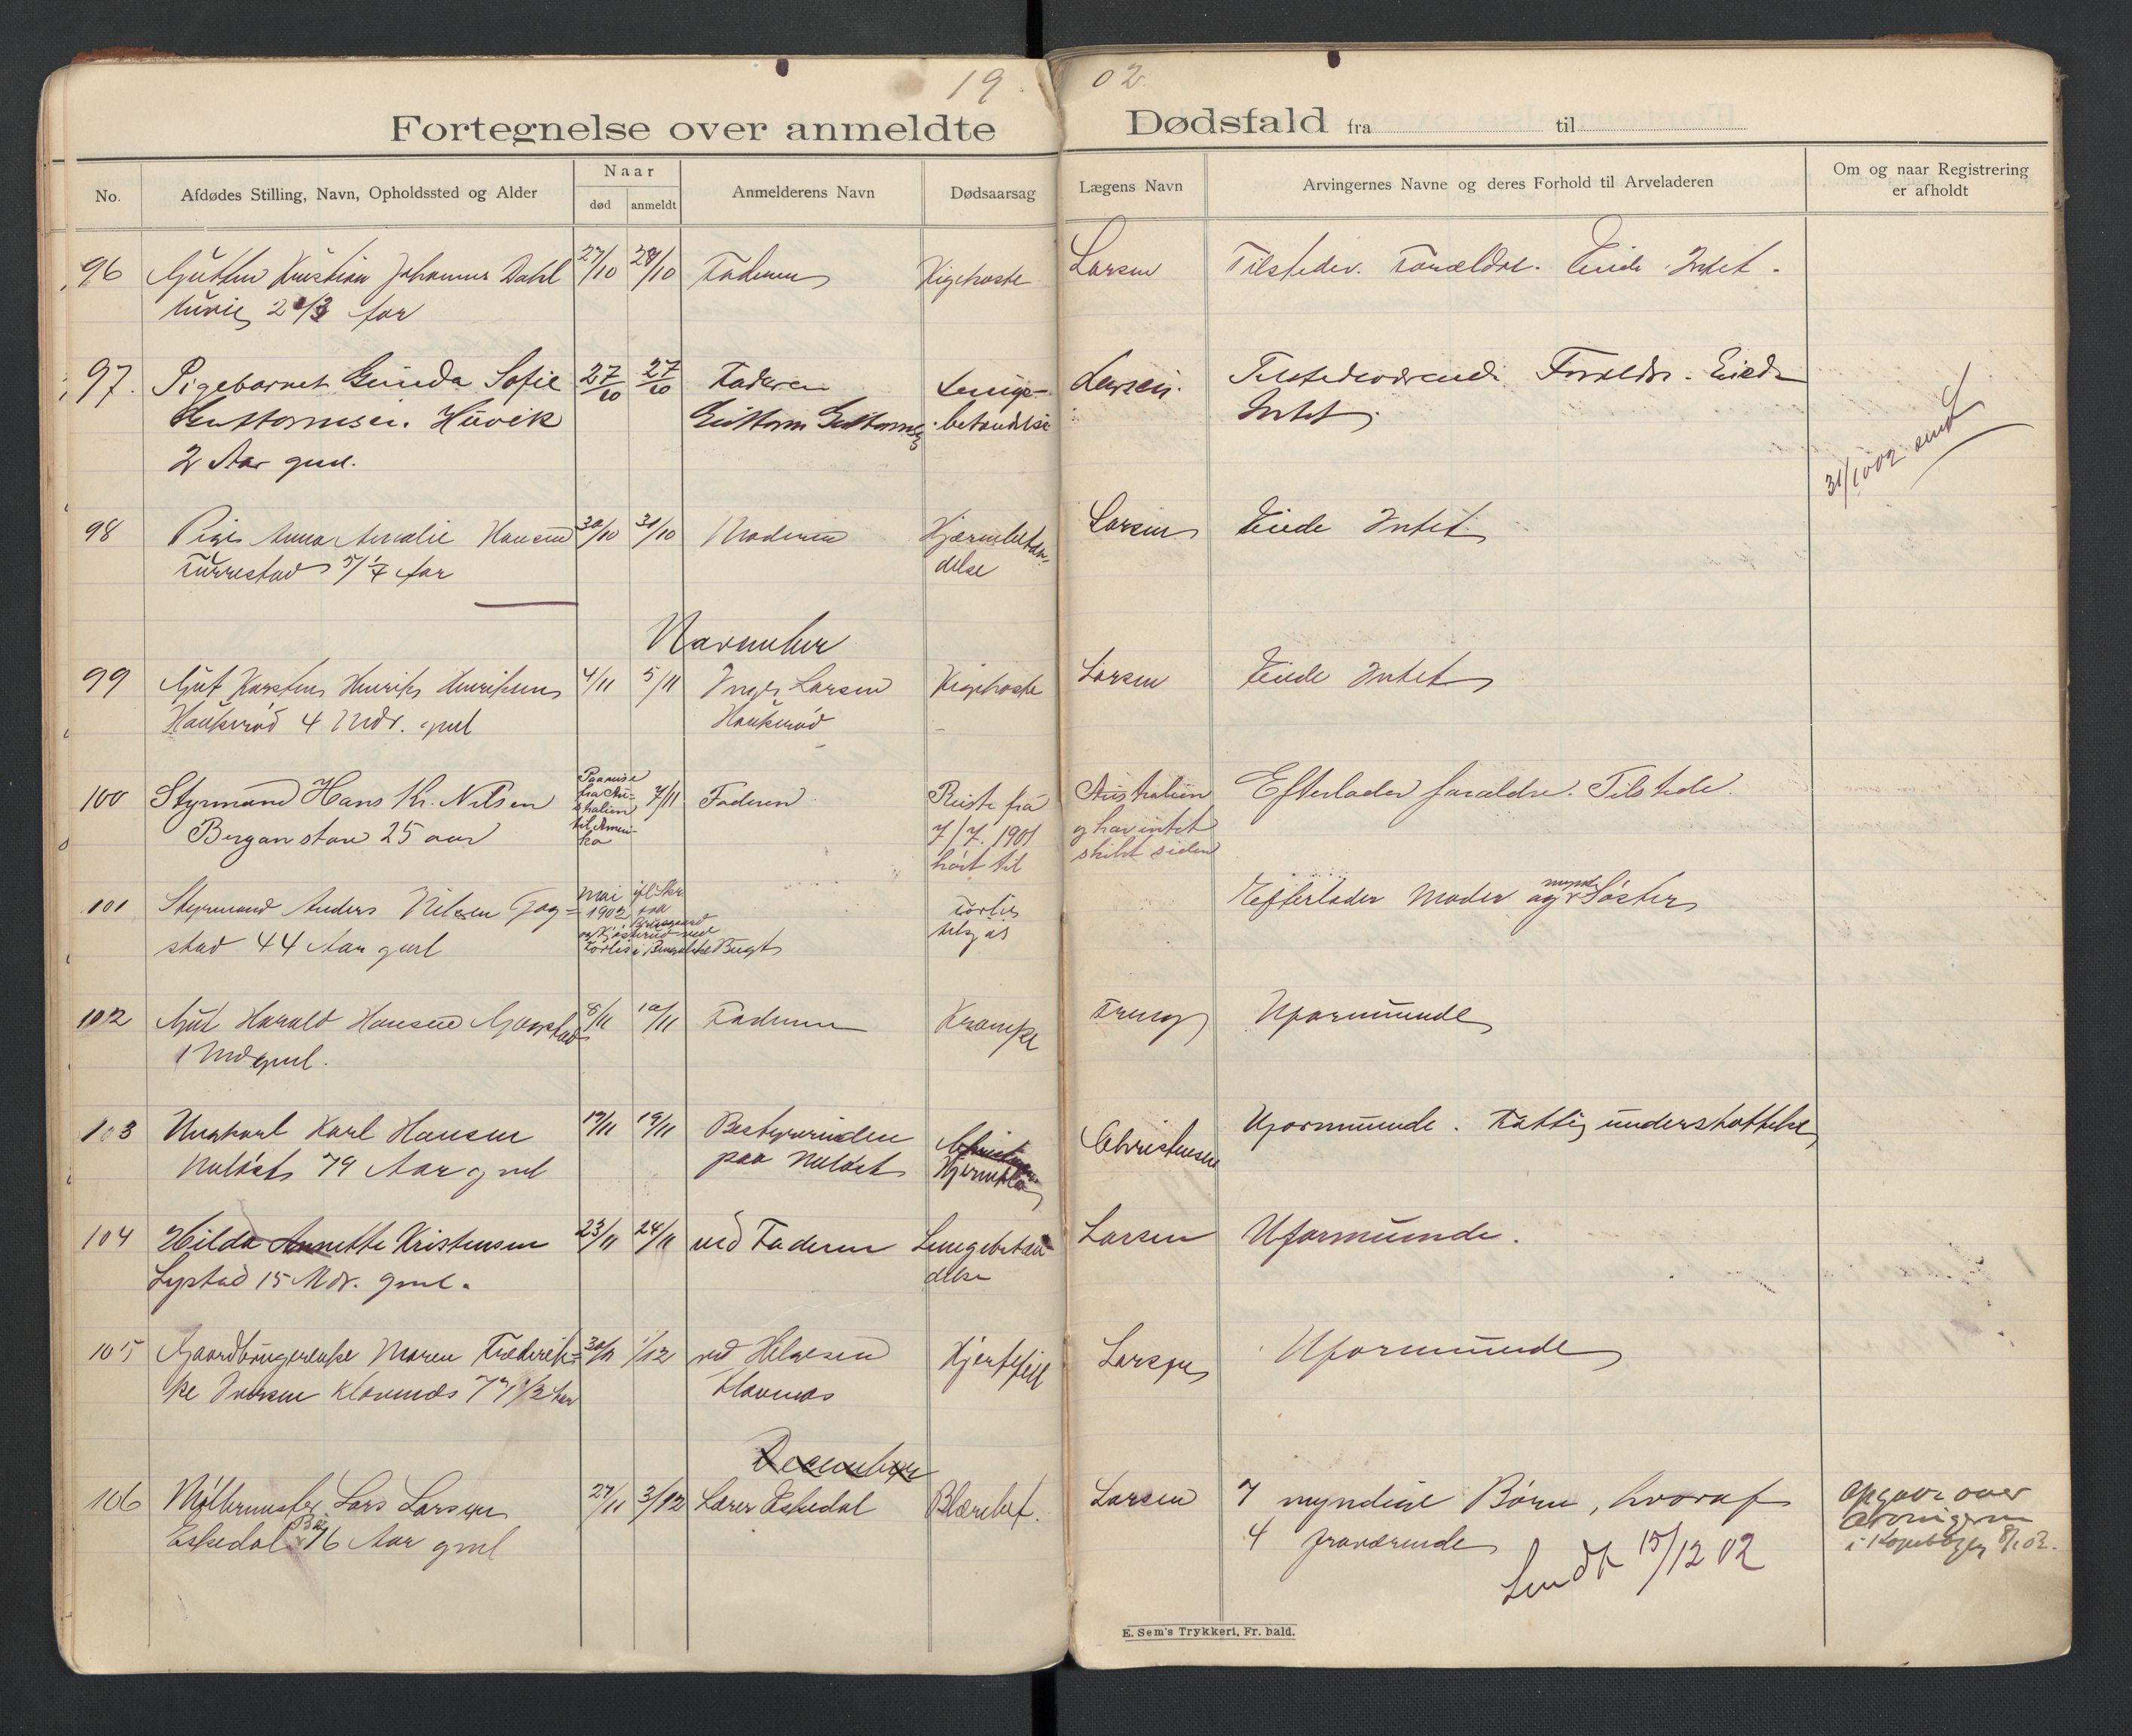 19 02
Fortegnelse over anmeldte Dødsfald fra til
No. Afdødes Stilling, Navn, Opholdssted og Alder Naar død anmeldt Anmelderens Navn Dødsaarsag Lægens Navn Arvingernes Navne og deres Forhold til Arveladeren Om og naar Registrering er afholdt
96 Gutten Kristian Johannes Dahl 27/10 28/10 Faderen Kighoste Larsen Tilstedev. Forældre. Eiede Intet.
2 Aar
97. Pigebarnet Gunda Sofie 27/10 27/10 Faderen Lunge- Larsen. Tilstedeværende Foreldre. Eiede
Guttormsen. Huvik Guttorm Guttormsen betændelse Intet.
2 Aar gml.
31/10 02 sendt
98 Pige Anna Amalie Hansen 30/10 31/10 Moderen Hjærnebetæn- Larsen Eiede Intet
Furrestad 5 1/4 Aar delse
November
99 Gut Karsten Henrik Henriksen 4/11 5/11 Inger Larsen Kighoste Larsen Eiede Intet
Haukerød 4 Mdr. gml Haukerød
100 Styrmand Hans Kr. Nilsen Paa reise fra Au- stralien til Ameri- ka 7/11 Faderen Reiste fra Australien Efterlader forældre. Tilstede.
Bergan stav 25 aar 7/7. 1901 og har intet
hørt til skibet siden
101 Styrmand Anders Nilsen Gog= Mai 1902 Forlis Efterlader Moder og mynd. Søster
stad 44 Aar gml Forlis i Bengalske Bugt
102 Gut Harald Hansen Gogstad 8/11 10/11 Faderen Krampe Uformuende
1 Md gml.
103 Ungkarl Karl Hansen 19/11 19/11 Bestyrerinden Christensen Uformuende. Fattig understøttelse
Nuløst 79 Aar gml paa Nuløst
104 Hilda Annette Kristensen 23/11 24/11 ved Faderen Lungebetæn- Larsen Uformuende.
Lystad 15 Mdr. gml. delse
105 Gaardbrugerenke Maren Frederik= 30/11 1/12 ved Helgesen Hjertefeil Larsen Uformuende
ke Iversen Klavenæs 77 1/2 Aar Klavenæs
December
106 Møllermester Lars Larsen 27/11 3/12 Lærer Eskedal Blærebet. Larsen 7 myndige Børn, hvoraf Opgave over
Eskedal 76 Aar gml 4 fraværende Arvingerne
Sendt 15/12 02 i Kopibogen
E. Sem's Trykkeri, Fr. hald.